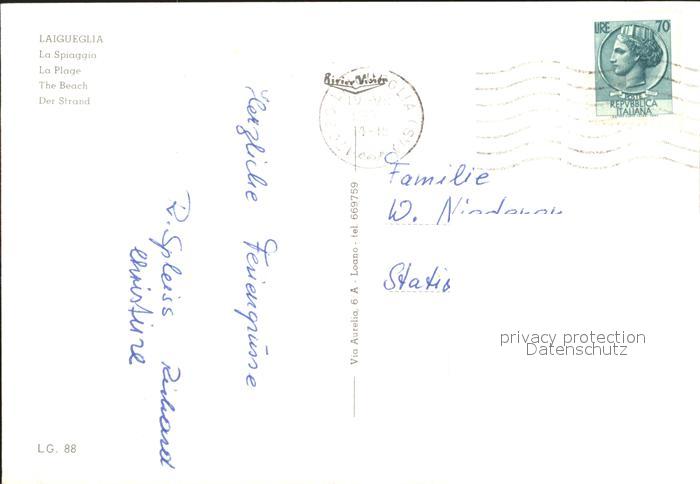 LAIGUEGLIA
La Spiaggia
La Plage
The Beach
Der Strand
LIRE 70
POSTE
REPVBBLICA
ITALIANA
Herzliche Feriengrüsse
R. Spleiss Richard
Christine
Via Aurelia, 6 A - Loano - tel. 669759
Familie
W.
privacy protection
Datenschutz
LG. 88